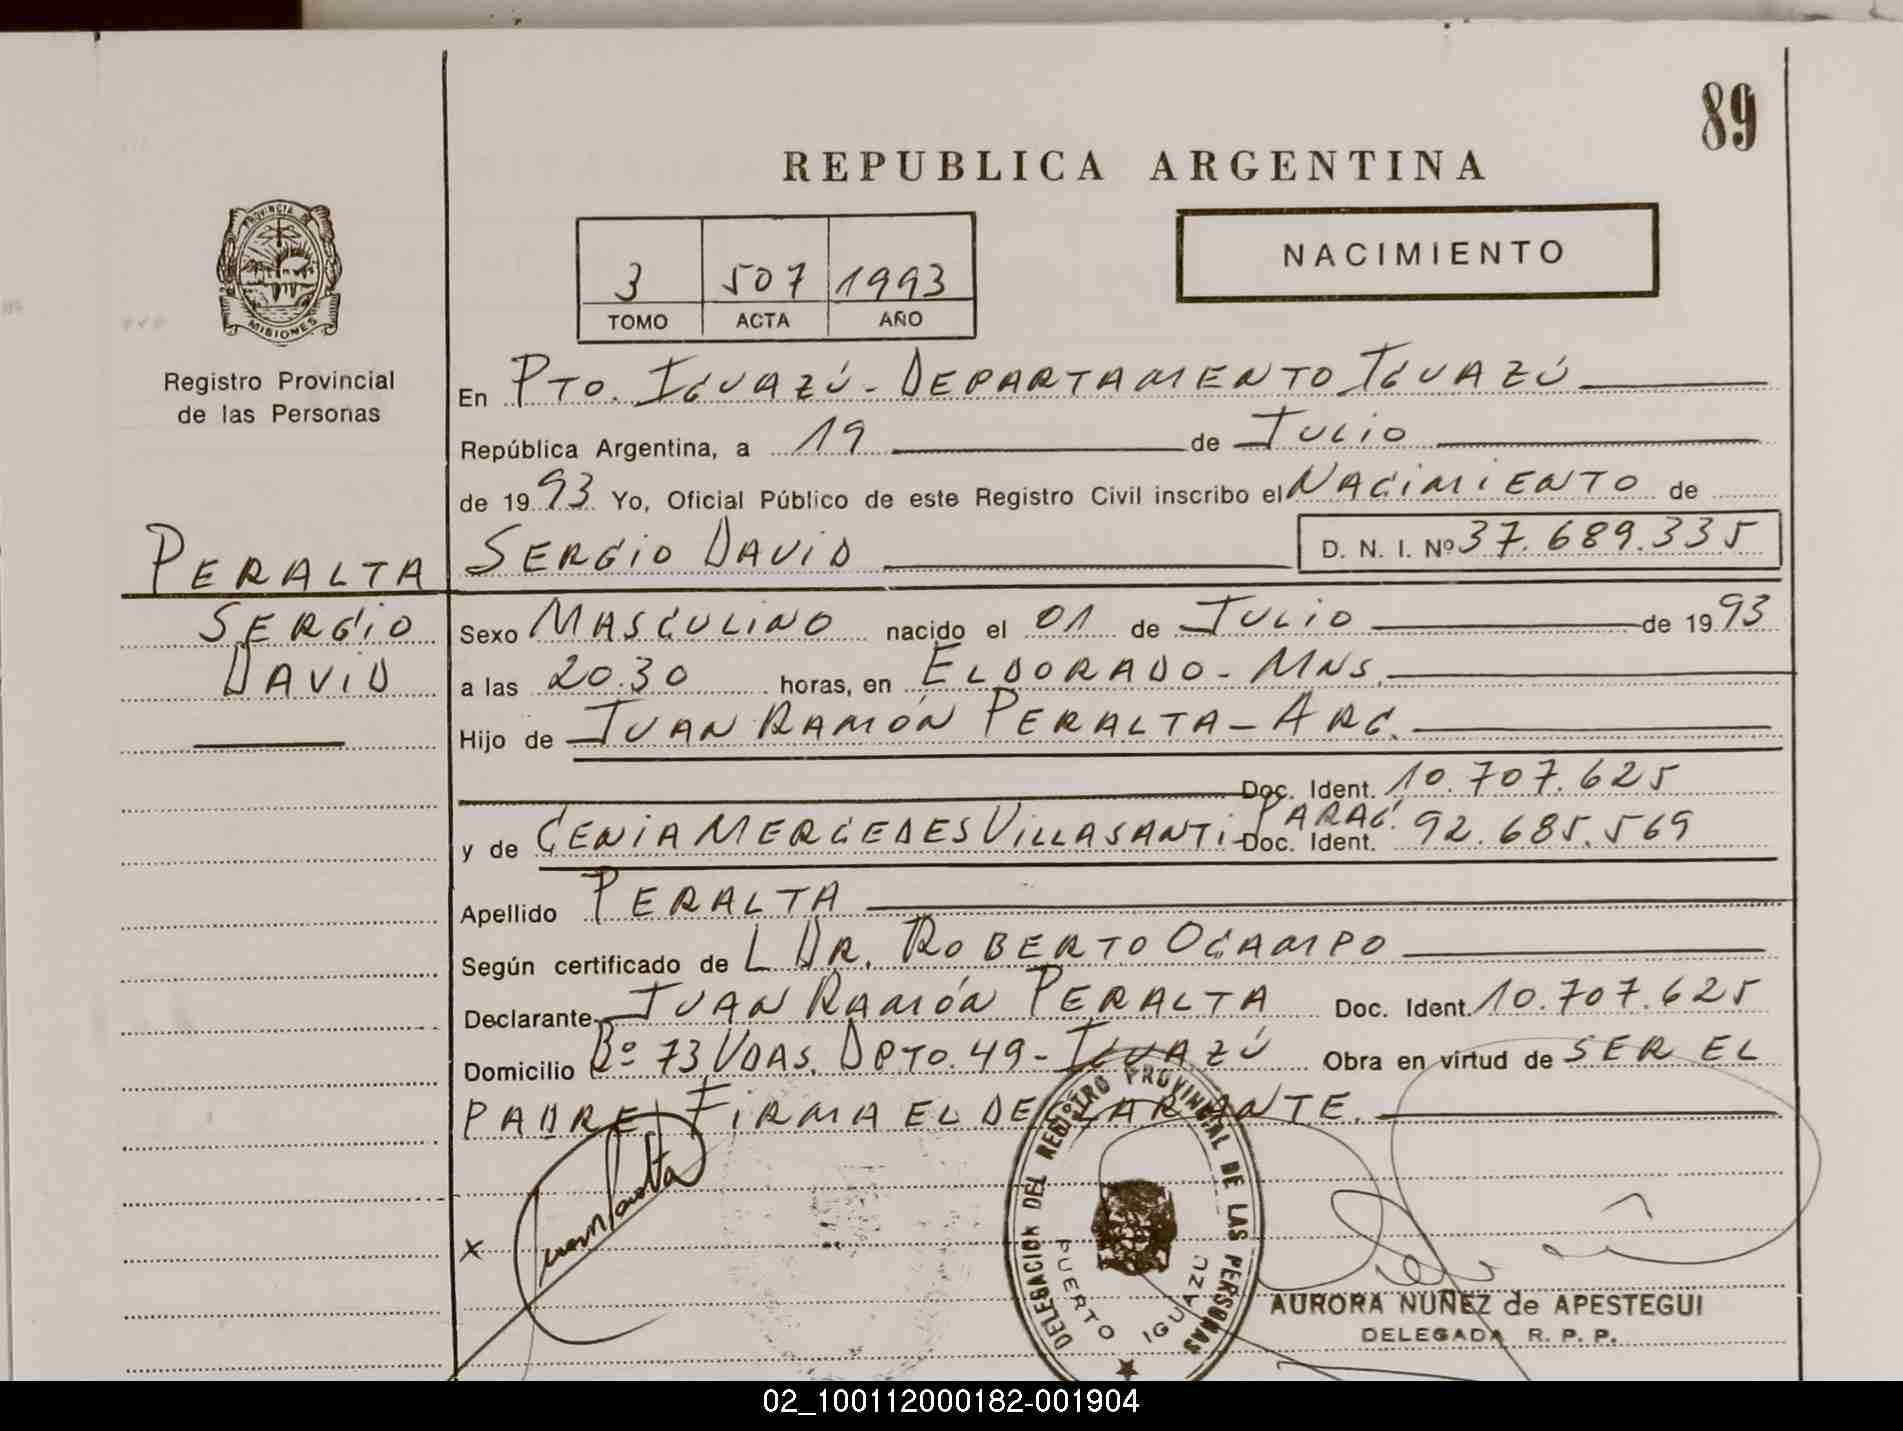 89
REPUBLICA ARGENTINA
PROVINCIA DE
MISIONES
Registro Provincial
de las Personas
3 507 1993
TOMO ACTA AÑO
NACIMIENTO
En PTO. IGUAZÚ - DEPARTAMENTO IGUAZÚ
República Argentina, a 19 de JULIO
de 1993 Yo, Oficial Público de este Registro Civil inscribo el NACIMIENTO de
PERALTA SERGIO DAVID D. N. I. Nº 37.689.335
SERGIO Sexo MASCULINO nacido el 01 de JULIO de 1993
DAVID a las 20.30 horas, en ELDORADO - MNS.
Hijo de JUAN RAMÓN PERALTA - ARG.
Doc. Ident. 10.707.625
y de CENIA MERCEDES VILLASANTI - PARAG. Doc. Ident. 92.685.569
Apellido PERALTA
Según certificado de L DR. ROBERTO OCAMPO
Declarante JUAN RAMÓN PERALTA Doc. Ident. 10.707.625
Domicilio Bº 73 VDAS. DPTO. 49 - IGUAZÚ Obra en virtud de SER EL
PADRE FIRMA EL DECLARANTE.
X
DELEGACION DEL REGISTRO PROVINCIAL DE LAS PERSONAS
PUERTO IGUAZU
AURORA NUÑEZ de APESTEGUI
DELEGADA R. P. P.
02_100112000182-001904